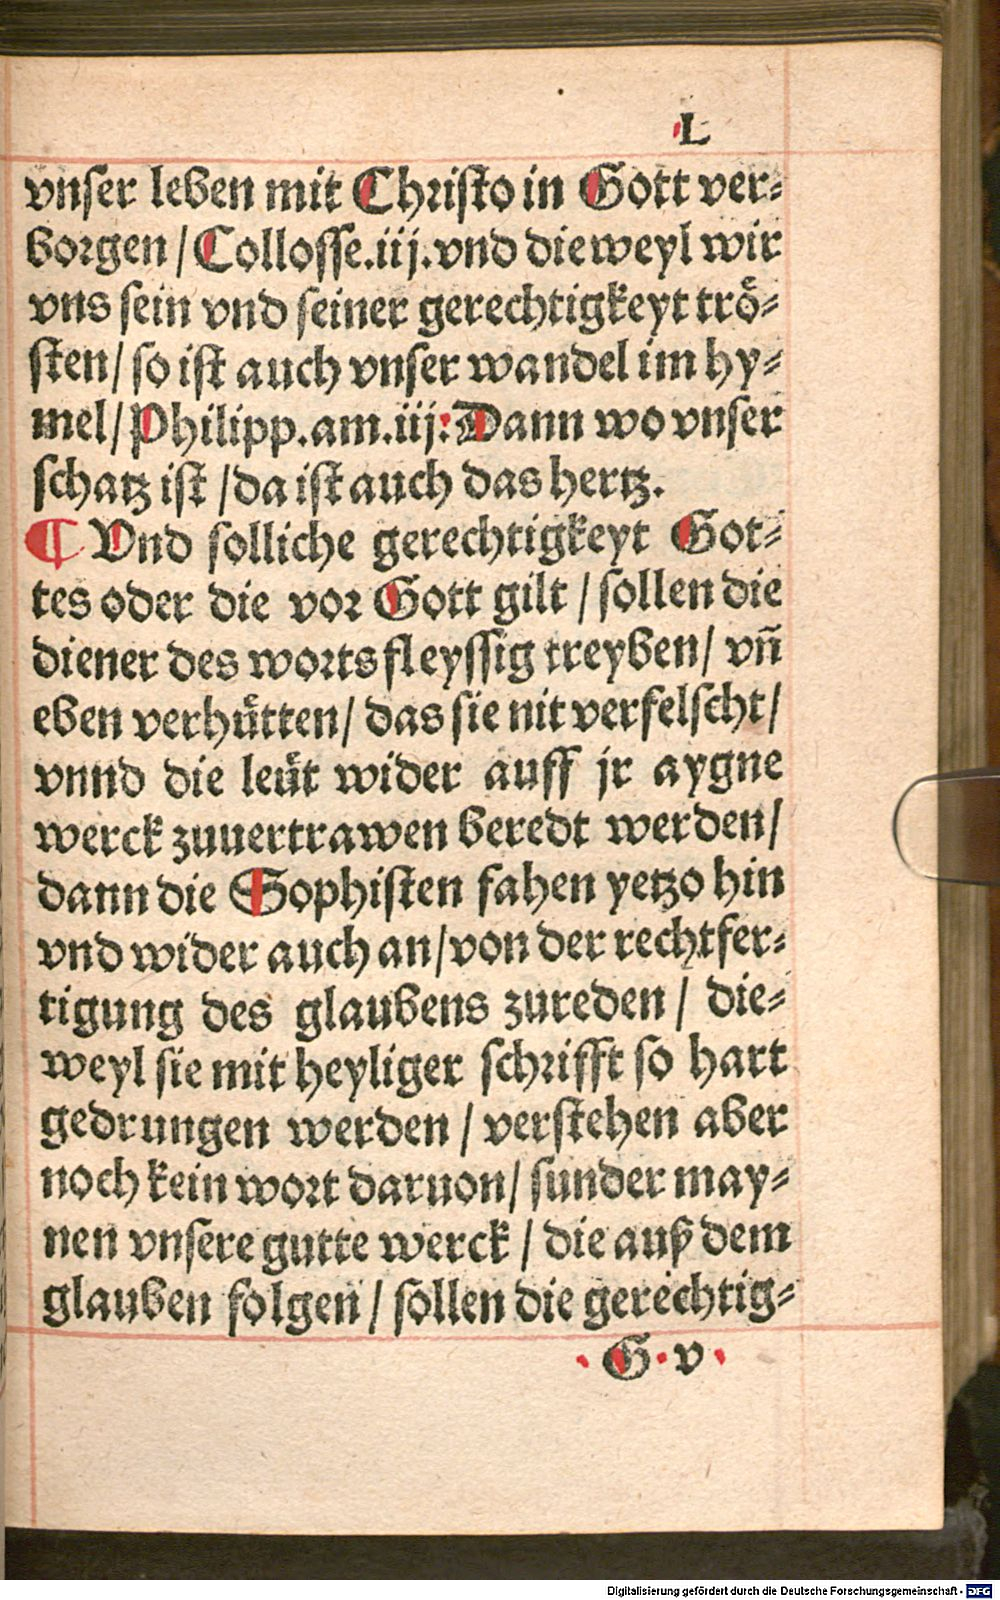 L
vnser leben mit Christo in Gott ver⸗
borgen / Collosse.iij.vnd dieweyl wir
vns sein vnd seiner gerechtigkeyt trö⸗
sten / so ist auch vnser wandel im hy⸗
mel / Philipp.am.iij: Dann wo vnser
schatz ist / da ist auch das hertz.
¶ Vnd solliche gerechtigkeyt Got⸗
tes oder die vor Gott gilt / sollen die
diener des worts fleyssig treyben / vñ
eben verhuͤtten / das sie nit verfelscht /
vnnd die leuͤt wider auff jr aygne
werck zuuertrawen beredt werden /
dann die Sophisten fahen yetzo hin
vnd wider auch an / von der rechtfer⸗
tigung des glaubens zureden / die⸗
weyl sie mit heyliger schrifft so hart
gedrungen werden / verstehen aber
noch kein wort daruon / sunder may⸗
nen vnsere gutte werck / die auß dem
glauben folgen / sollen die gerechtig⸗
G v
Digitalisierung gefördert durch die Deutsche Forschungsgemeinschaft - DFG